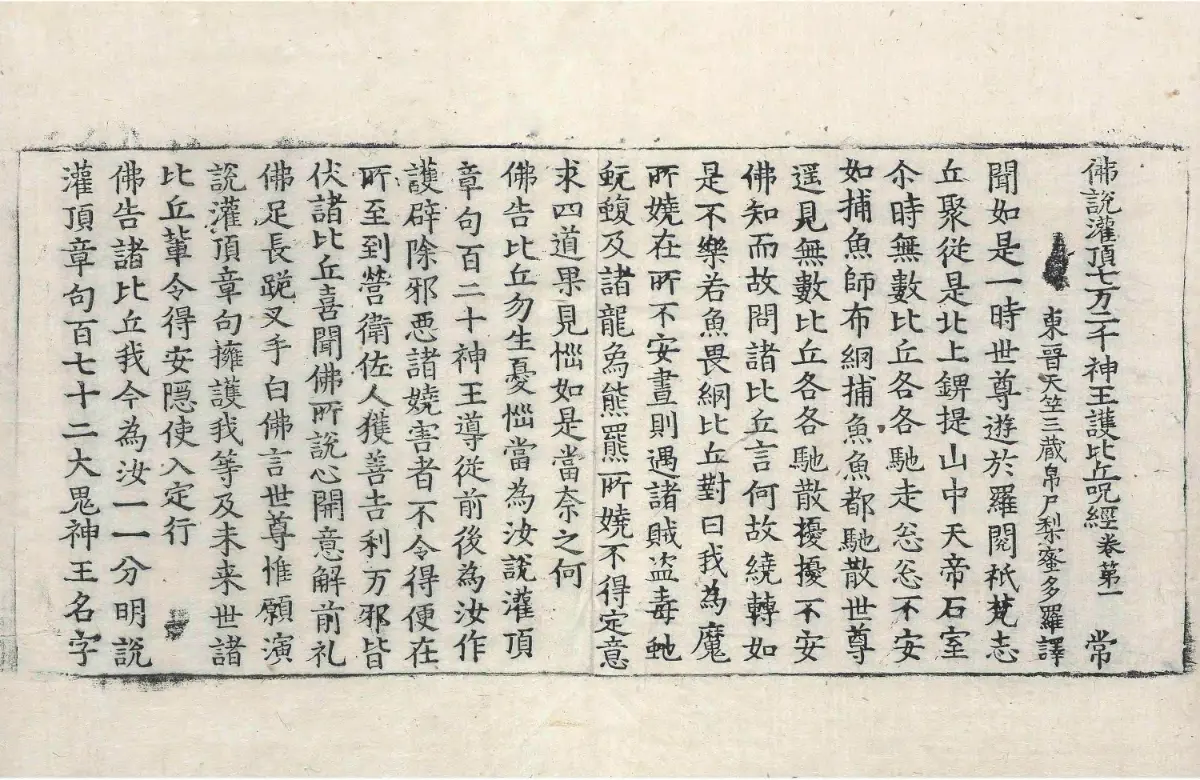 佛說灌頂七万二千神王護比丘呪經卷第一 常
東晉天竺三藏帛尸梨蜜多羅譯
聞如是一時世尊遊於羅閱祇梵志
丘聚從是北上錍提山中天帝石室
尒時無數比丘各各馳走忩忩不安
如捕魚師布網捕魚魚都馳散世尊
遥見無數比丘各各馳散擾擾不安
佛知而故問諸比丘言何故繞轉如
是不樂若魚畏網比丘對曰我為魔
所嬈在所不安晝則遇諸賊盜毒虵
蚖蝮及諸龍象熊羆所嬈不得定意
求四道果見惱如是當奈之何
佛告比丘勿生憂惱當為汝說灌頂
章句百二十神王導從前後為汝作
護辟除邪惡諸嬈害者不令得便在
所至到營衛佐人獲善吉利万邪皆
伏諸比丘喜聞佛所說心開意解前礼
佛足長跪叉手白佛言世尊惟願演
說灌頂章句擁護我等及未来世諸
比丘輩令得安隱使入定行
佛告諸比丘我今為汝一一分明說
灌頂章句百七十二大鬼神王名字